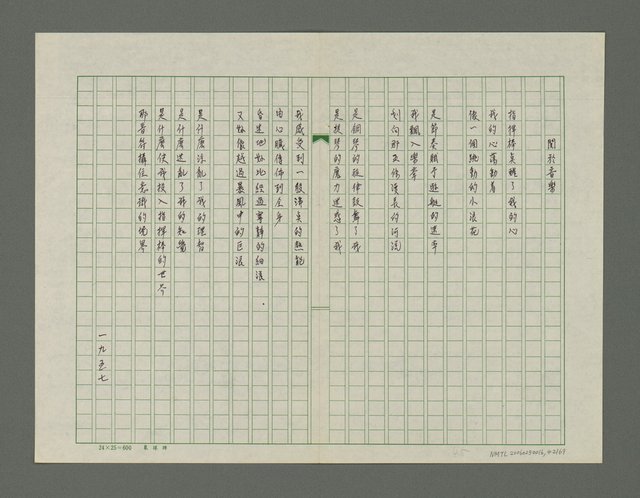 關於音樂
指揮棒點醒了我的心
我的心蕩動着
像一個跳動的小浪花
是節奏賦予遊艇的速率
我飄入樂章
划向那支修漫長的河流
是鋼琴的旋律鼓舞了我
是提琴的魔力迷惑了我
我感受到一股沸點的熱能
由心臟傳佈到全身
奮進地如此經過寧靜的細浪
又好像越過暴風中的巨浪
是什麼淩亂了我的理智
是什麼迷亂了我的知覺
是什麼使我投入指揮棒的世界
那音符攝住意識的境界
一九五七
24×25=600
NMTL 20060290016, 42/69